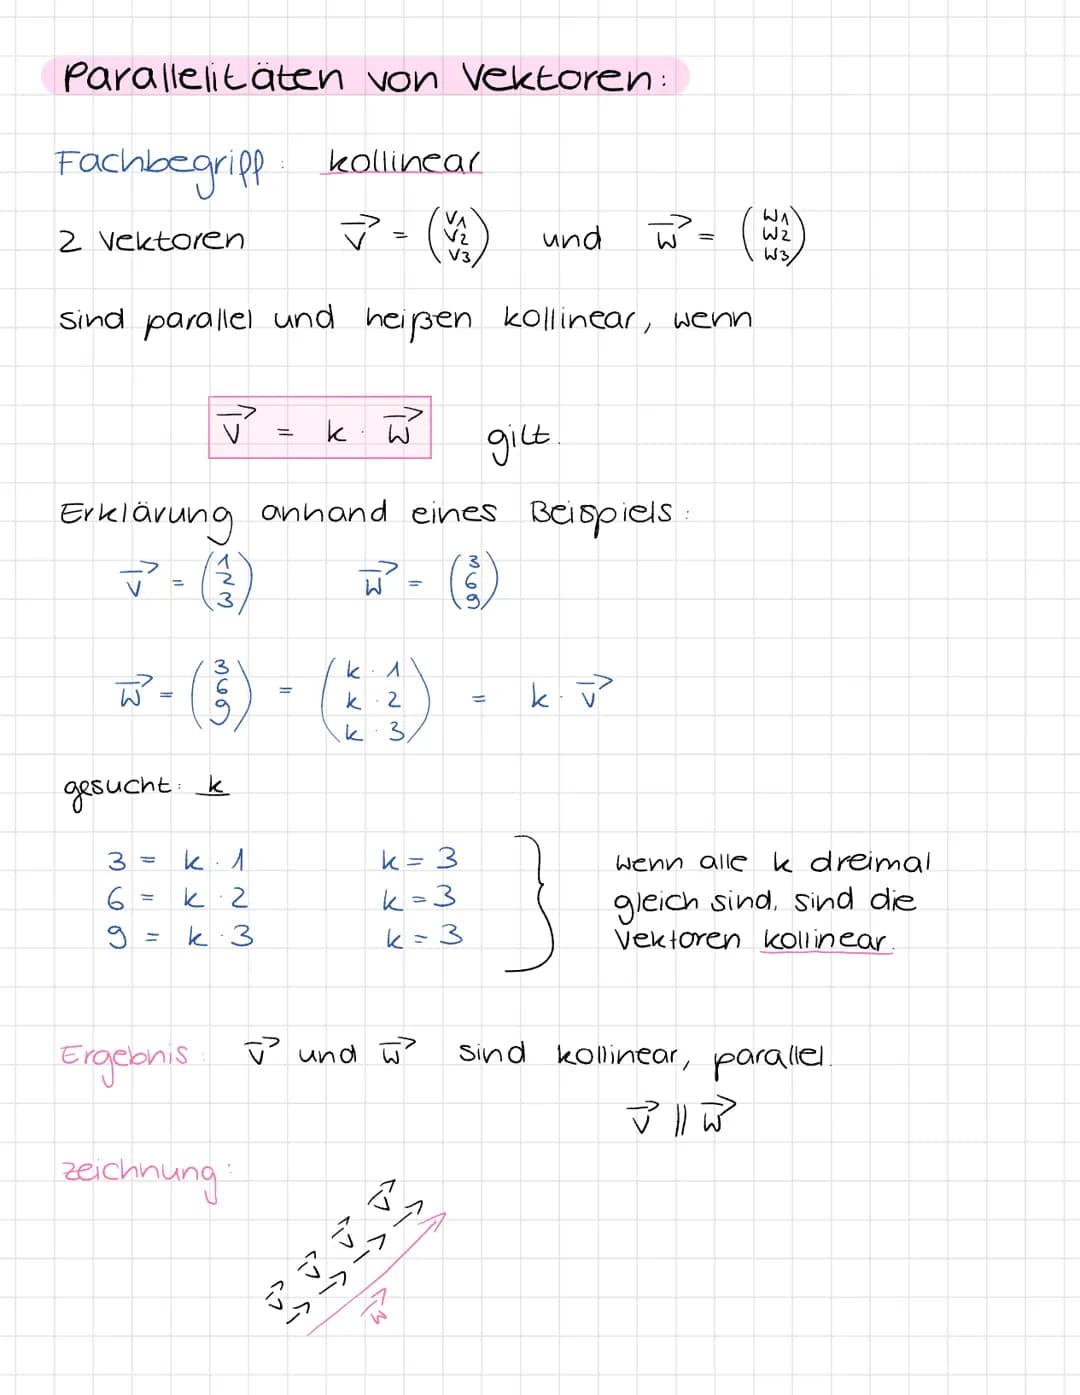 Parallelitäten von Vektoren:
Fachbegriff: kollinear
2 Vektoren v⃗ = (v1 v2 v3) und w⃗ = (w1 w2 w3)
sind parallel und heißen kollinear, wenn
v⃗ = k · w⃗ gilt.
Erklärung anhand eines Beispiels:
v⃗ = (1 2 3) w⃗ = (3 6 9)
w⃗ = (3 6 9) = (k · 1 k · 2 k · 3) = k · v⃗
gesucht: k
3 = k · 1 k = 3 wenn alle k dreimal
6 = k · 2 k = 3 gleich sind, sind die
9 = k · 3 k = 3 Vektoren kollinear.
Ergebnis: v⃗ und w⃗ sind kollinear, parallel.
v⃗ || w⃗
zeichnung:
v⃗ v⃗ v⃗ v⃗
w⃗